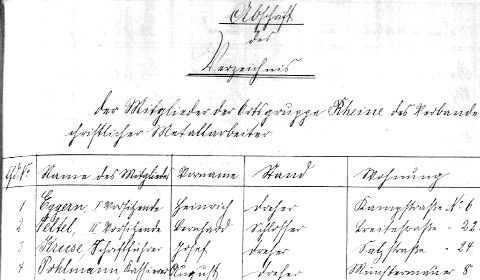 Abschrift
des
Verzeichnis
der Mitglieder der Ortsgruppe Rheine des Verbande
christlicher Metallarbeiter
Lfd. Nº Name des Mitgliedes Vorname Stand Wohnung
1 Eggern, I Vorsitzende Heinrich Dreher Kampstraße Nº 6
2 II Vorsitzende Bernhard Schlosser Breitestraße " 22
3 Kruse, Schriftführer Josef Dreher Salzstraße " 24
4 Pohlmann Kassierer August Dreher Münstermauer 8